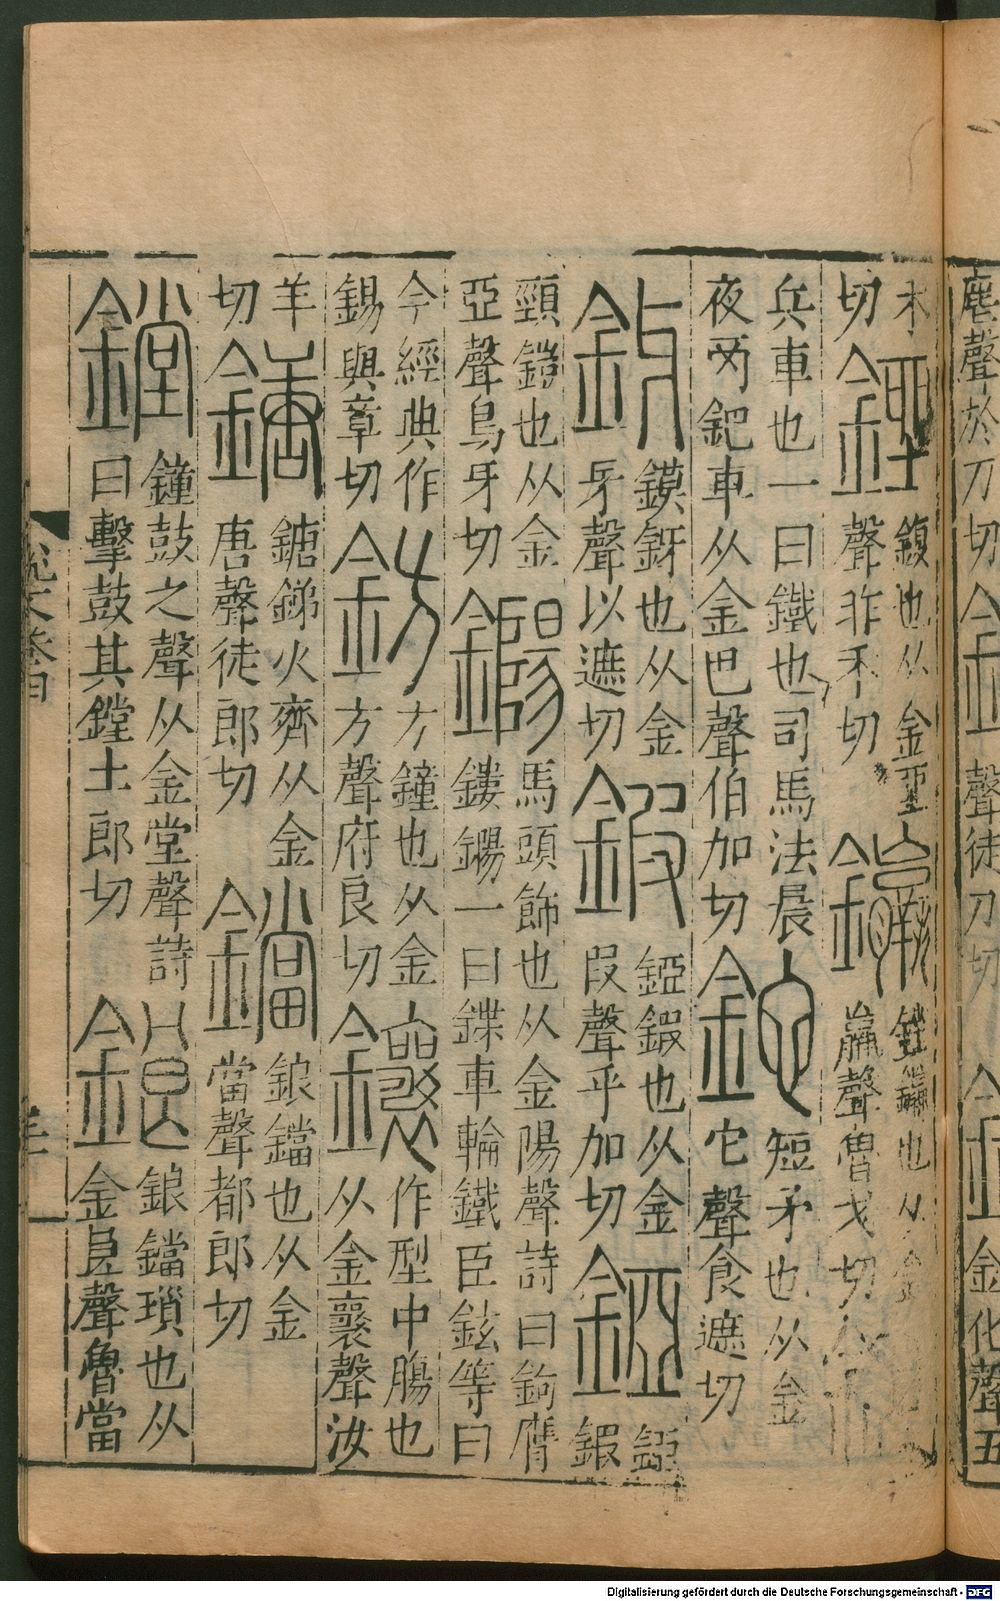 聲於刀切金聲徒刀切金金化聲五
禾切銼鍑也从金坐聲昨禾切鑼銼鑼也从金聲魯戈切
兵車也一曰鐵也司馬法晨夜內鈀車从金巴聲伯加切鉈短矛也从金它聲食遮切
釾鏌釾也从金牙聲以遮切鍜錏鍜也从金叚聲乎加切錏錏鍜
頸鎧也从金亞聲烏牙切鐊馬頭飾也从金陽聲詩曰鉤膺鏤鐊一曰鍱車輪鐵臣鉉等曰
今經典作錫與章切鈁方鐘也从金方聲府良切鑲作型中腸也从金襄聲汝
羊切鎕鎕銻火齊从金唐聲徒郎切鐺鋃鐺也从金當聲都郎切
鏜鐘鼓之聲从金堂聲詩曰擊鼓其鏜土郎切鋃鋃鐺瑣也从金良聲魯當
Digitalisierung gefördert durch die Deutsche Forschungsgemeinschaft - DFG